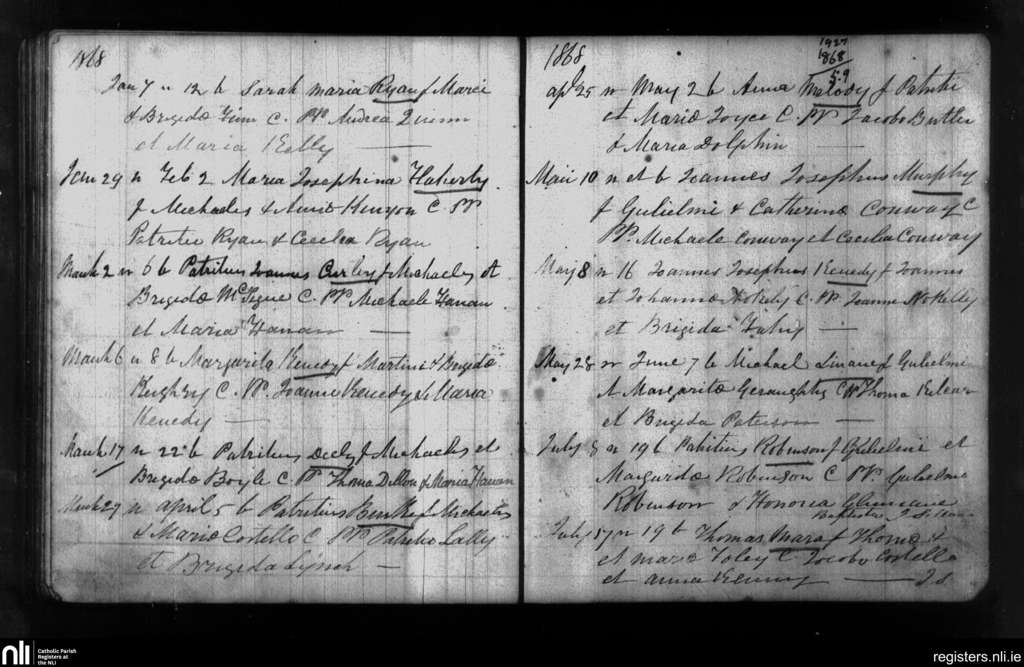 1868
Jan 7 n 12 b Sarah Maria Ryan f Marci
& Brigidæ Finn C. PP Andrea Quinn
et Maria Kelly
Jan 29 n Feb 2 Maria Josephina Flaherty
f Michaelis & Annæ Kenyon C. PP
Patritio Ryan & Cecelia Ryan
March 2 n 6 b Patritius Joannes Curley f Michaelis et
Brigidæ McTigue C. PP Michaele Hanan
et Maria Hanan
March 6 n 8 b Margarita Kenedy f Martini & Brigidæ
C. PP. Joanne Kenedy & Maria
Kenedy
March 17 n 22 b Patritius Deely f Michaelis et
Brigidæ Boyle C. PP Thoma Dillon & Maria Hanan
March 29 n April 5 b Patritius Burke f Michaelis
& Mariæ Costello C PP Patritio Lally
et Brigida Lynch
1868
1927
1868
59
Apl 25 n May 2 b Anna Melody f Patritii
et Mariæ Joyce C. PP Jacobo Butler
& Maria Dolphin
Maii 10 n et b Joannes Josephus Murphy
f Gulielmi & Catherinæ Conway C
PP. Michaele Conway et Cecilia Conway
May 8 n 16 Joannes Josephus Kenedy f Joannis
et Johannæ C. PP Joanne
et Brigida Fahy
May 28 n June 7 b Michael Linane f Gulielmi
& Margaritæ Geraughty C PP Thoma
et Brigida Paterson
July 8 n 19 b Patritius Robinson f Gulielmi et
Margaritæ Robinson C PP. Gulielmo
Robinson & Honoria
July 17 n 19 b Thomas Mara f Thomæ &
et Mariæ Foley C Jacobo Costello
et Anna Kenny
nli
Catholic Parish
Registers at
the NLI
registers.nli.ie